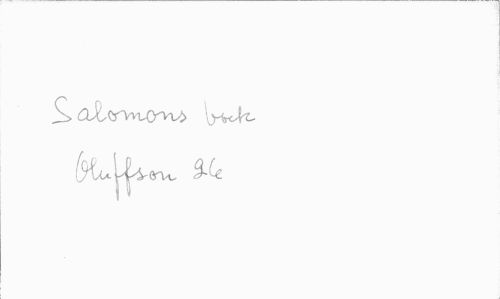 Salomons bock
Oluffson 26